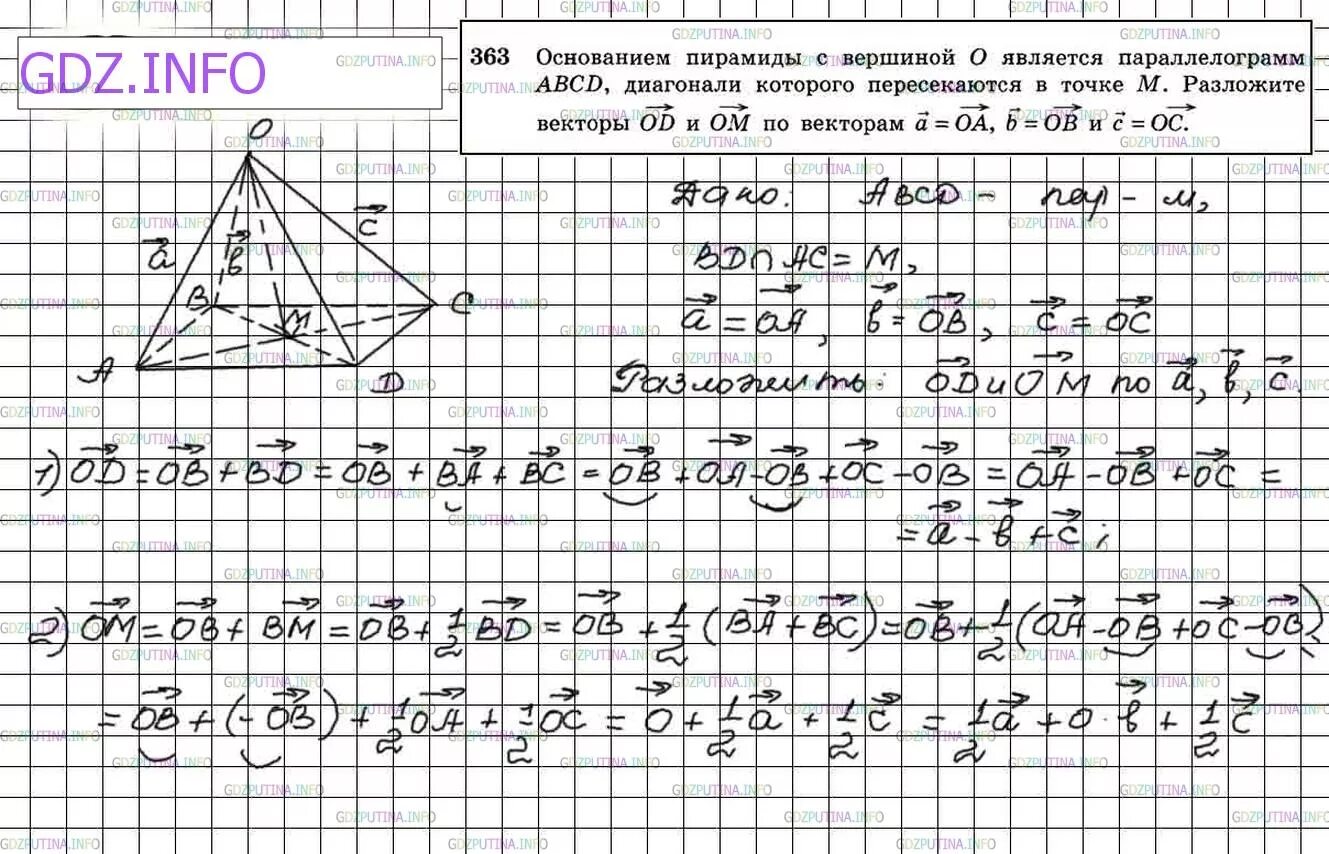 GDZ.INFO
363 Основанием пирамиды с вершиной O является параллелограмм
ABCD, диагонали которого пересекаются в точке M. Разложите
векторы OD⃗ и OM⃗ по векторам a⃗ = OA⃗, b⃗ = OB⃗ и c⃗ = OC⃗.
O
a⃗
в⃗
c⃗
B
M
C
A
D
Дано: ABCD – пар-м,
BD∩AC = M,
a⃗ = OA⃗, в⃗ = OB⃗, c⃗ = OC⃗
Разложить: OD⃗ и OM⃗ по a⃗, в⃗, c⃗.
1) OD⃗ = OB⃗ + BD⃗ = OB⃗ + BA⃗ + BC⃗ = OB⃗ + OA⃗ - OB⃗ + OC⃗ - OB⃗ = OA⃗ - OB⃗ + OC⃗ =
= a⃗ - в⃗ + c⃗;
2) OM⃗ = OB⃗ + BM⃗ = OB⃗ + 1/2 BD⃗ = OB⃗ + 1/2 (BA⃗ + BC⃗) = OB⃗ + 1/2 (OA⃗ - OB⃗ + OC⃗ - OB⃗) =
= OB⃗ + (-OB⃗) + 1/2 OA⃗ + 1/2 OC⃗ = 0⃗ + 1/2 a⃗ + 1/2 c⃗ = 1/2 a⃗ + 0 · в⃗ + 1/2 c⃗
GDZPUTINA.INFO